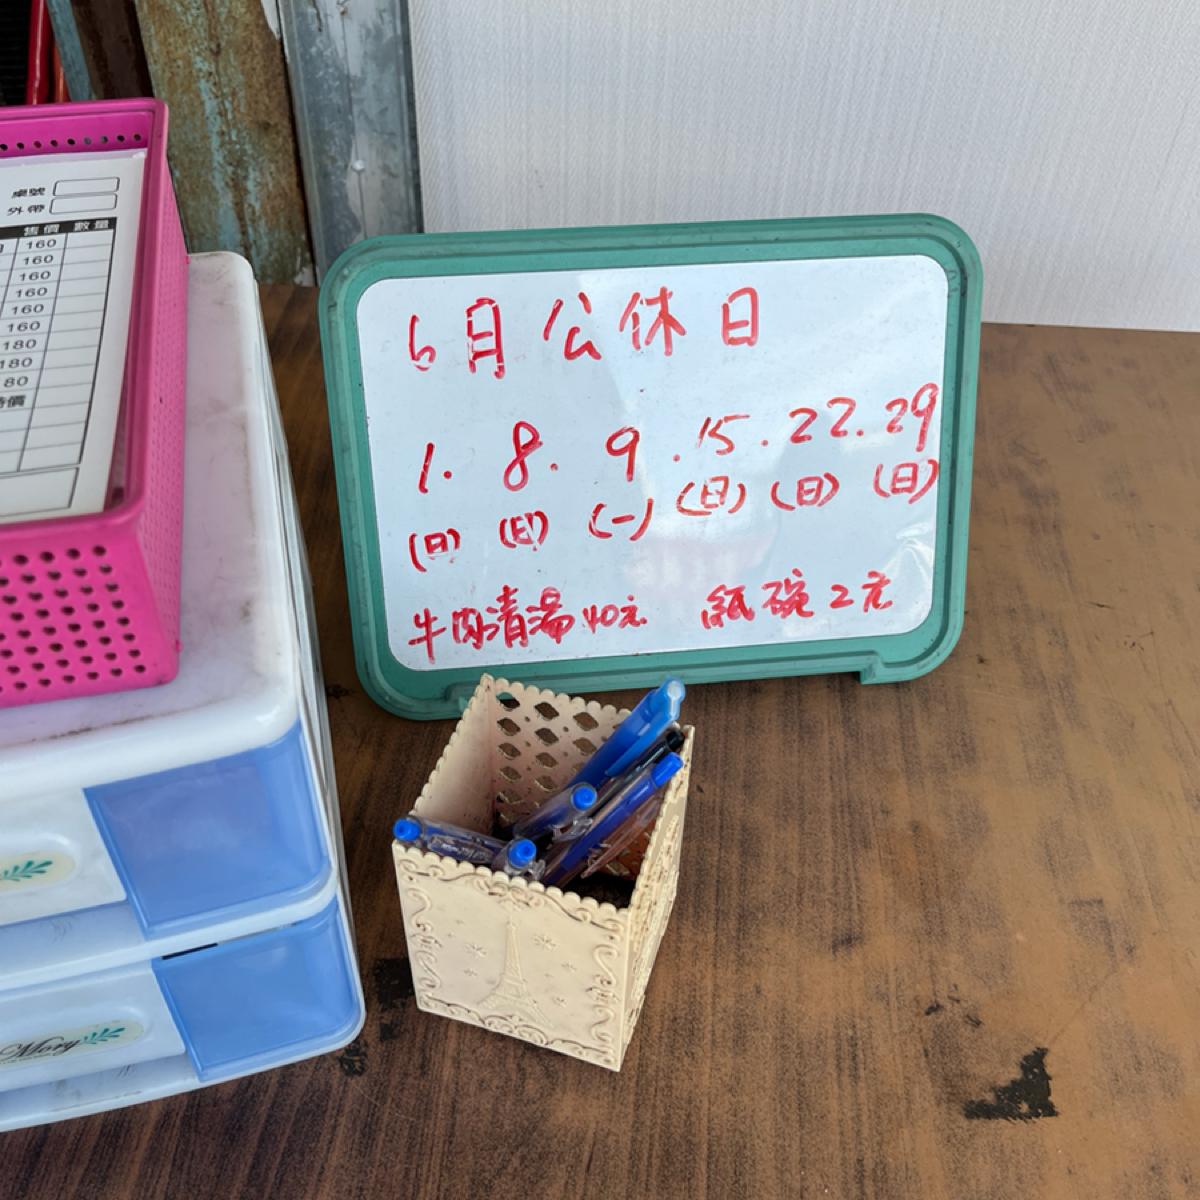 桌號
外帶
售價 數量
160
160
160
160
160
160
180
180
80
時價
6月公休日
1. 8. 9. 15. 22. 29
(日) (日) (一) (日) (日) (日)
牛肉清湯40元 紙碗2元
Mory